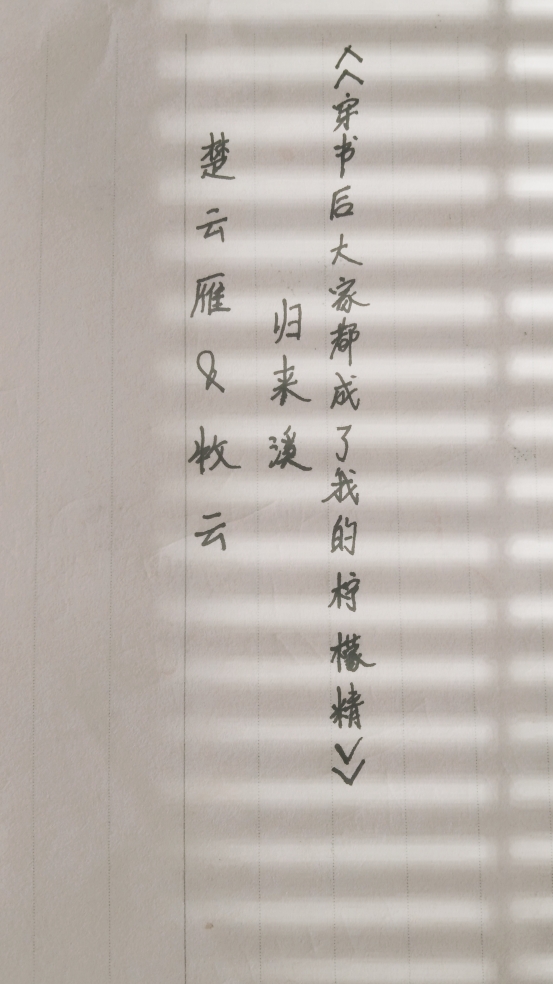 《穿书后大家都成了我的柠檬精》
归来溪
楚云雁&牧云